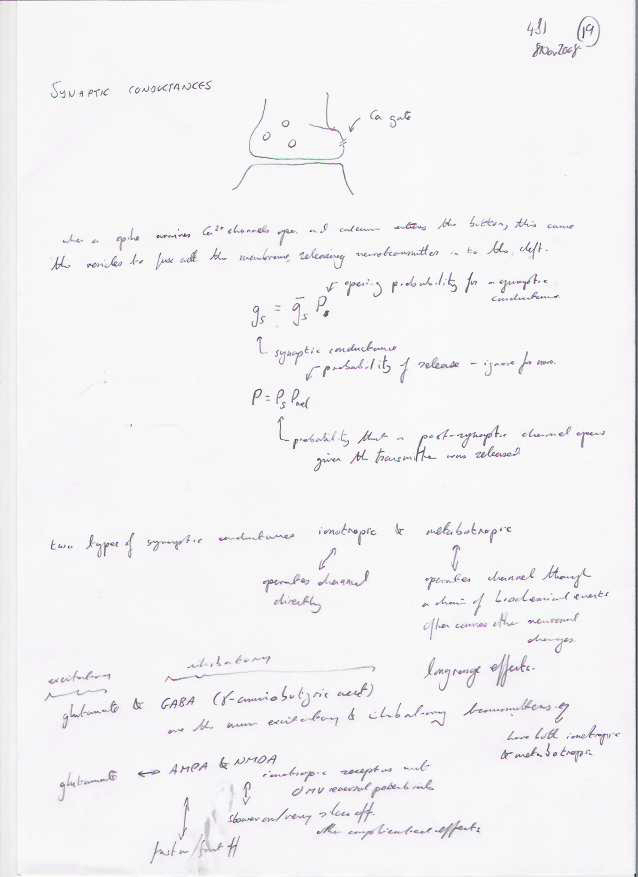 431 19
8Nov2008
SYNAPTIC CONDUCTANCES
Ca gate
when a spike arrives Ca2+ channels open and calcium enters the button, this causes
the vesicles to fuse with the membrane, releasing neurotransmitter in to the cleft.
opening probability for a synaptic
conductance
gs = ḡs P
synaptic conductance
probability of release – ignore for now.
P = Ps Prel
probability that a post-synaptic channel opens
given the transmitter was released
two types of synaptic conductances ionotropic & metabotropic
operates channel
directly
operates channel though
a chain of biochemical events
often causes other neuronal
changes
longrange effects.
excitatory inhibatory
glutamate & GABA (γ-aminobutyric acid)
are the main excitatory & inhibatory transmitters
have both ionotropic
& metabotropic
glutamate ↔ AMPA & NMDA
ionotropic receptors with
0MV reversal potentials
slower on/very slow off.
other complicated effects
fast on/fast off